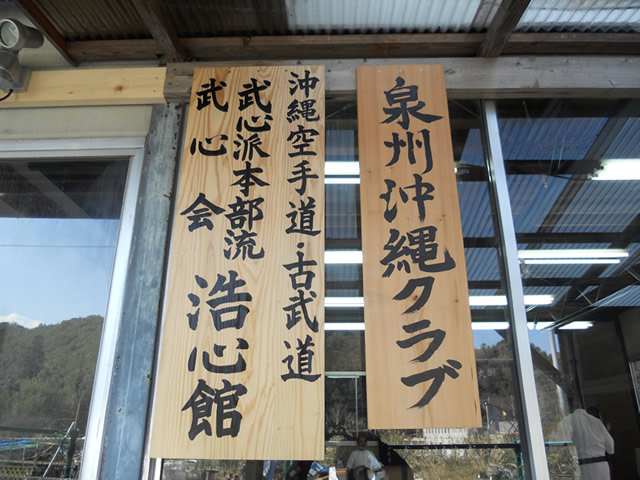 泉州沖縄クラブ
沖縄空手道・古武道
武心派本部流
武心会 浩心館